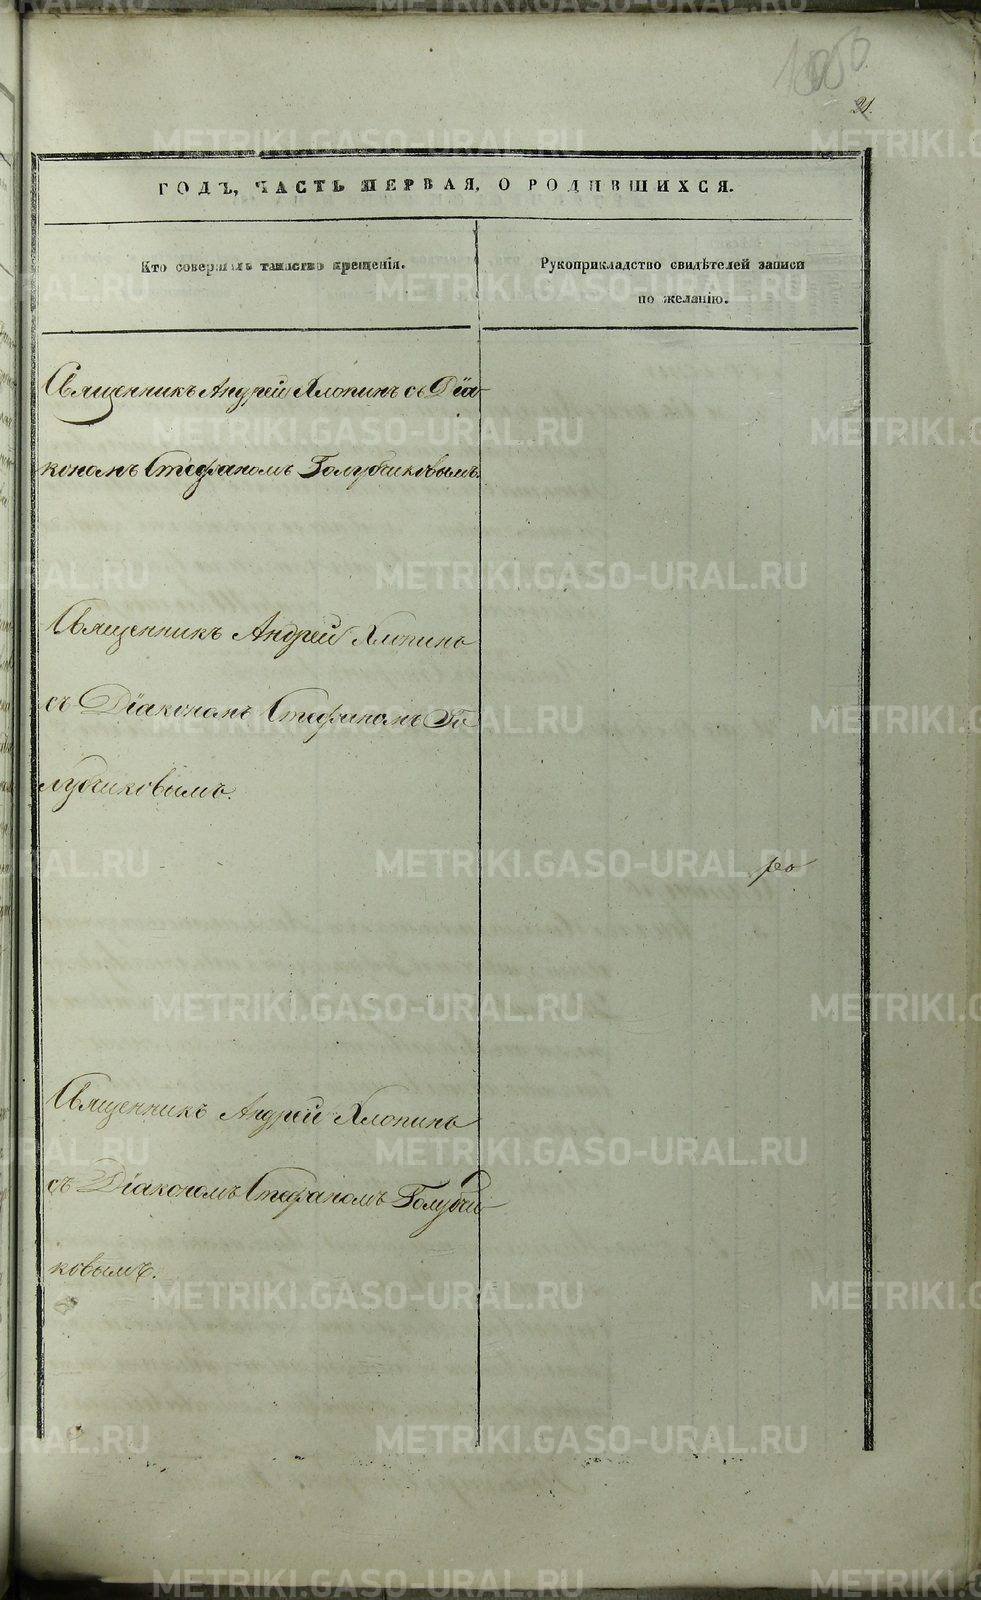 21.
ГОДЪ, ЧАСТЬ ПЕРВАЯ, О РОДИВШИХСЯ.
Кто совершалъ таинство крещенія.
Рукоприкладство свидѣтелей записи
по желанію.
Священникъ Андрей Хлопинъ съ Діа-
кономъ Стефаномъ Голубчиковымъ.
Священникъ Андрей Хлопинъ
съ Діакономъ Стефаномъ Го
лубчиковымъ.
Священникъ Андрей Хлопинъ
съ Діакономъ Стефаномъ Голубчи
ковымъ.
METRIKI.GASO-URAL.RU